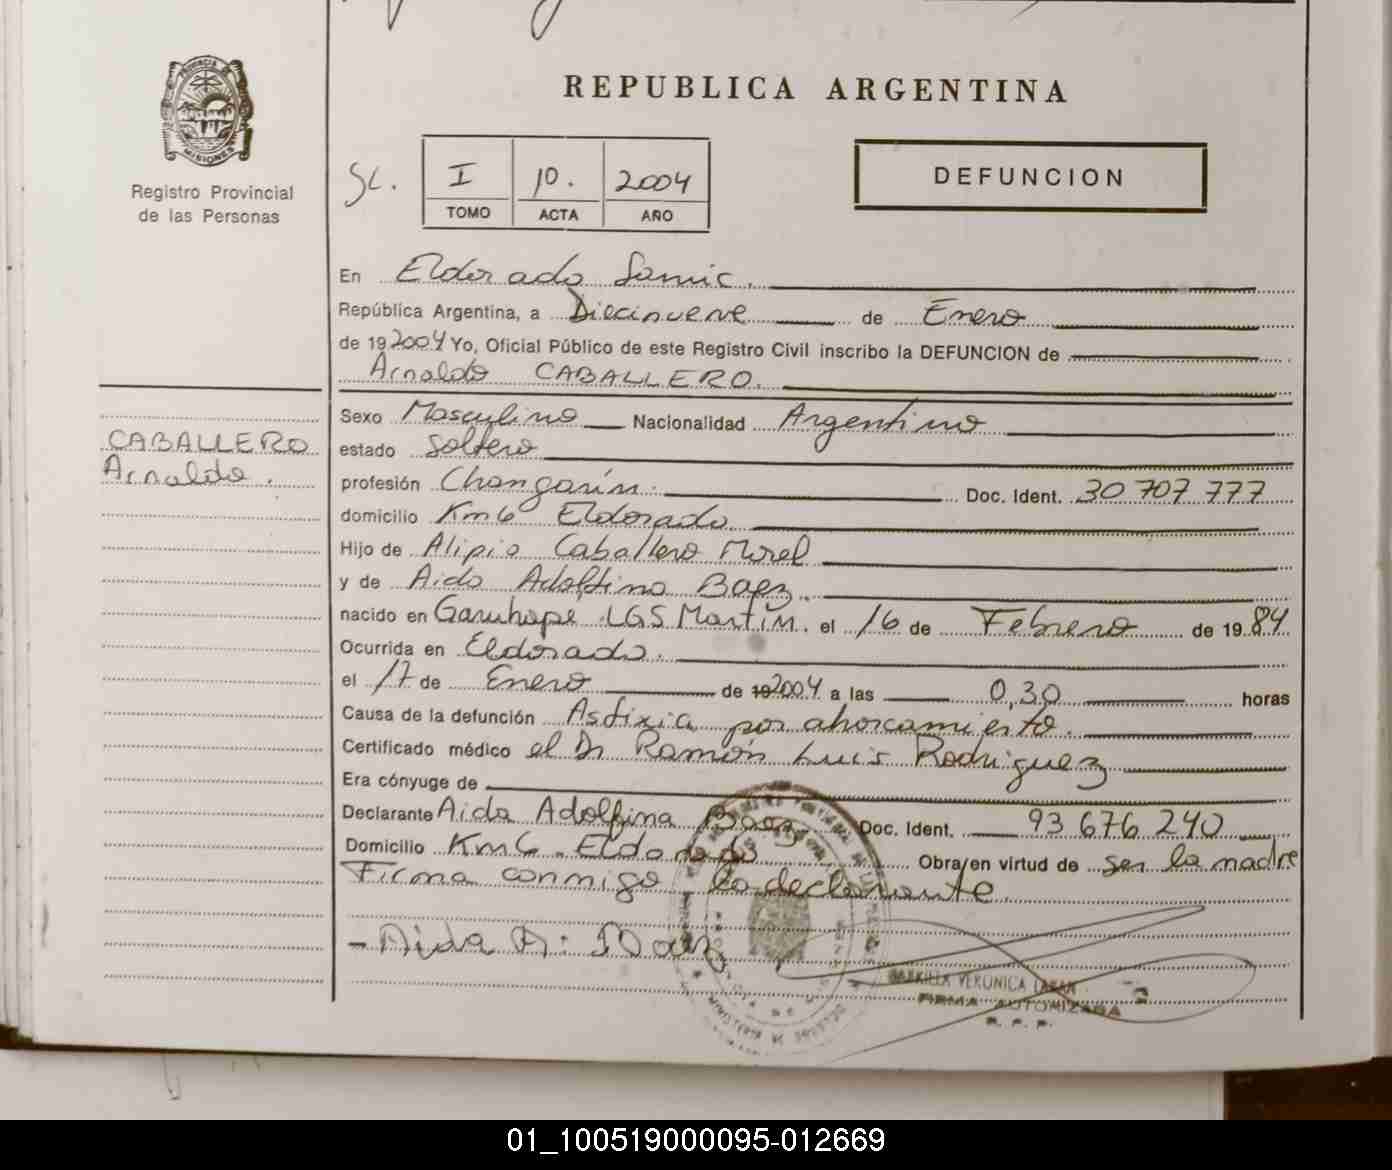 REPUBLICA ARGENTINA
PROVINCIA DE
MISIONES
Registro Provincial
de las Personas
Sc.
I 10. 2004
TOMO ACTA AÑO
DEFUNCION
En Eldorado Samic.
República Argentina, a Diecinueve de Enero
de 19 2004 Yo, Oficial Público de este Registro Civil inscribo la DEFUNCION de
Arnaldo CABALLERO.
CABALLERO
Arnaldo.
Sexo Masculino Nacionalidad Argentino
estado Soltero
profesión Changarín. Doc. Ident. 30 707 777
domicilio Km 6 Eldorado
Hijo de Alipio Caballero Morel
y de Aida Adolfina Baez.
nacido en Garuhape LGS Martín. el 16 de Febrero de 1984
Ocurrida en Eldorado.
el 17 de Enero de 19 2004 a las 0,30 horas
Causa de la defunción Asfixia por ahorcamiento.
Certificado médico el Dr Ramón Luis Rodriguez
Era cónyuge de
Declarante Aida Adolfina Baez Doc. Ident. 93 676 240
Domicilio Km 6. Eldorado Obra/en virtud de ser la madre
Firma conmigo la declarante.
- Aida A. Baez
VERONICA
FIRMA AUTORIZADA
R. P. P.
01_100519000095-012669